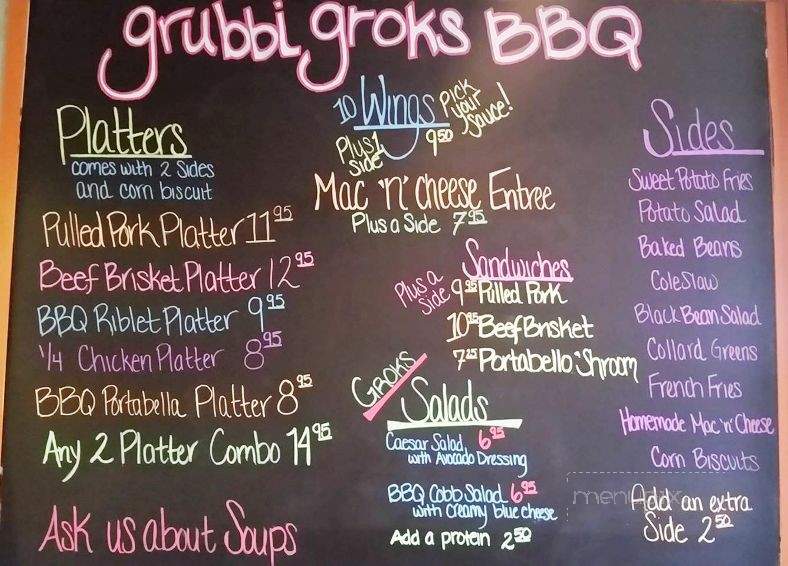 grubbi groks BBQ
Platters
comes with 2 Sides
and corn biscuit
Pulled Pork Platter 11 95
Beef Brisket Platter 12 95
BBQ Riblet Platter 9 95
1/4 Chicken Platter 8 95
BBQ Portabella Platter 8 95
Any 2 Platter Combo 14 95
Ask us about Soups
10 Wings Pick your Sauce!
Plus 1 side 9 50
Mac 'n' cheese Entree
Plus a Side 7 95
Sandwiches
Plus a side
9 95 Pulled Pork
10 95 Beef Brisket
7 25 Portabello 'Shroom
Groks
Salads
Caesar Salad 6 95
with Avocado Dressing
BBQ Cobb Salad 6 95
with creamy blue cheese
Add a protein 2 50
Sides
Sweet Potato Fries
Potato Salad
Baked Beans
Coleslaw
Black Bean Salad
Collard Greens
French Fries
Homemade Mac 'n' Cheese
Corn Biscuits
Add an extra
Side 2 50